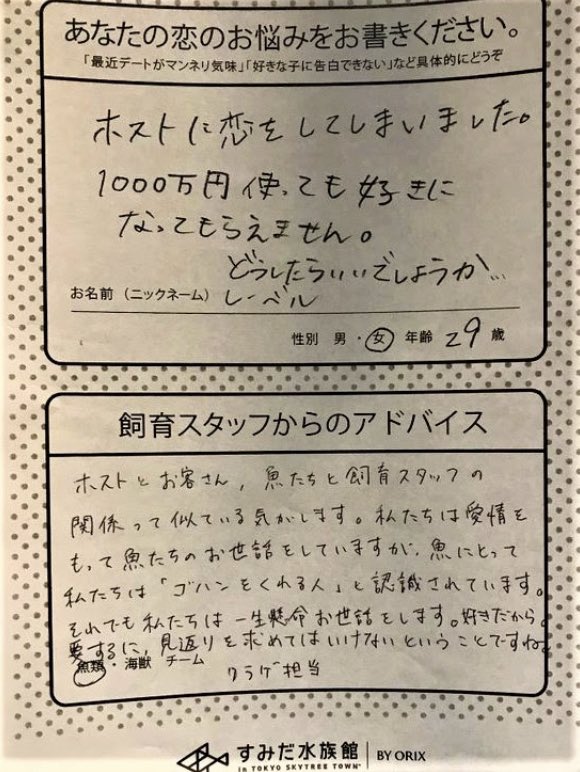 あなたの恋のお悩みをお書きください。
「最近デートがマンネリ気味」「好きな子に告白できない」など具体的にどうぞ
ホストに恋をしてしまいました。
1000万円使っても好きに
なってもらえません。
どうしたらいいでしょうか…
お名前（ニックネーム）レーベル
性別 男・女 年齢 29 歳
飼育スタッフからのアドバイス
ホストとお客さん、魚たちと飼育スタッフの
関係って似ている気がします。私たちは愛情を
もって魚たちのお世話をしていますが、魚にとって
私たちは「ゴハンをくれる人」と認識されています。
それでも私たちは一生懸命お世話をします。好きだから。
要するに、見返りを求めてはいけないということですね。
魚類・海獣 チーム
クラゲ担当
すみだ水族館 BY ORIX
in TOKYO SKYTREE TOWN®